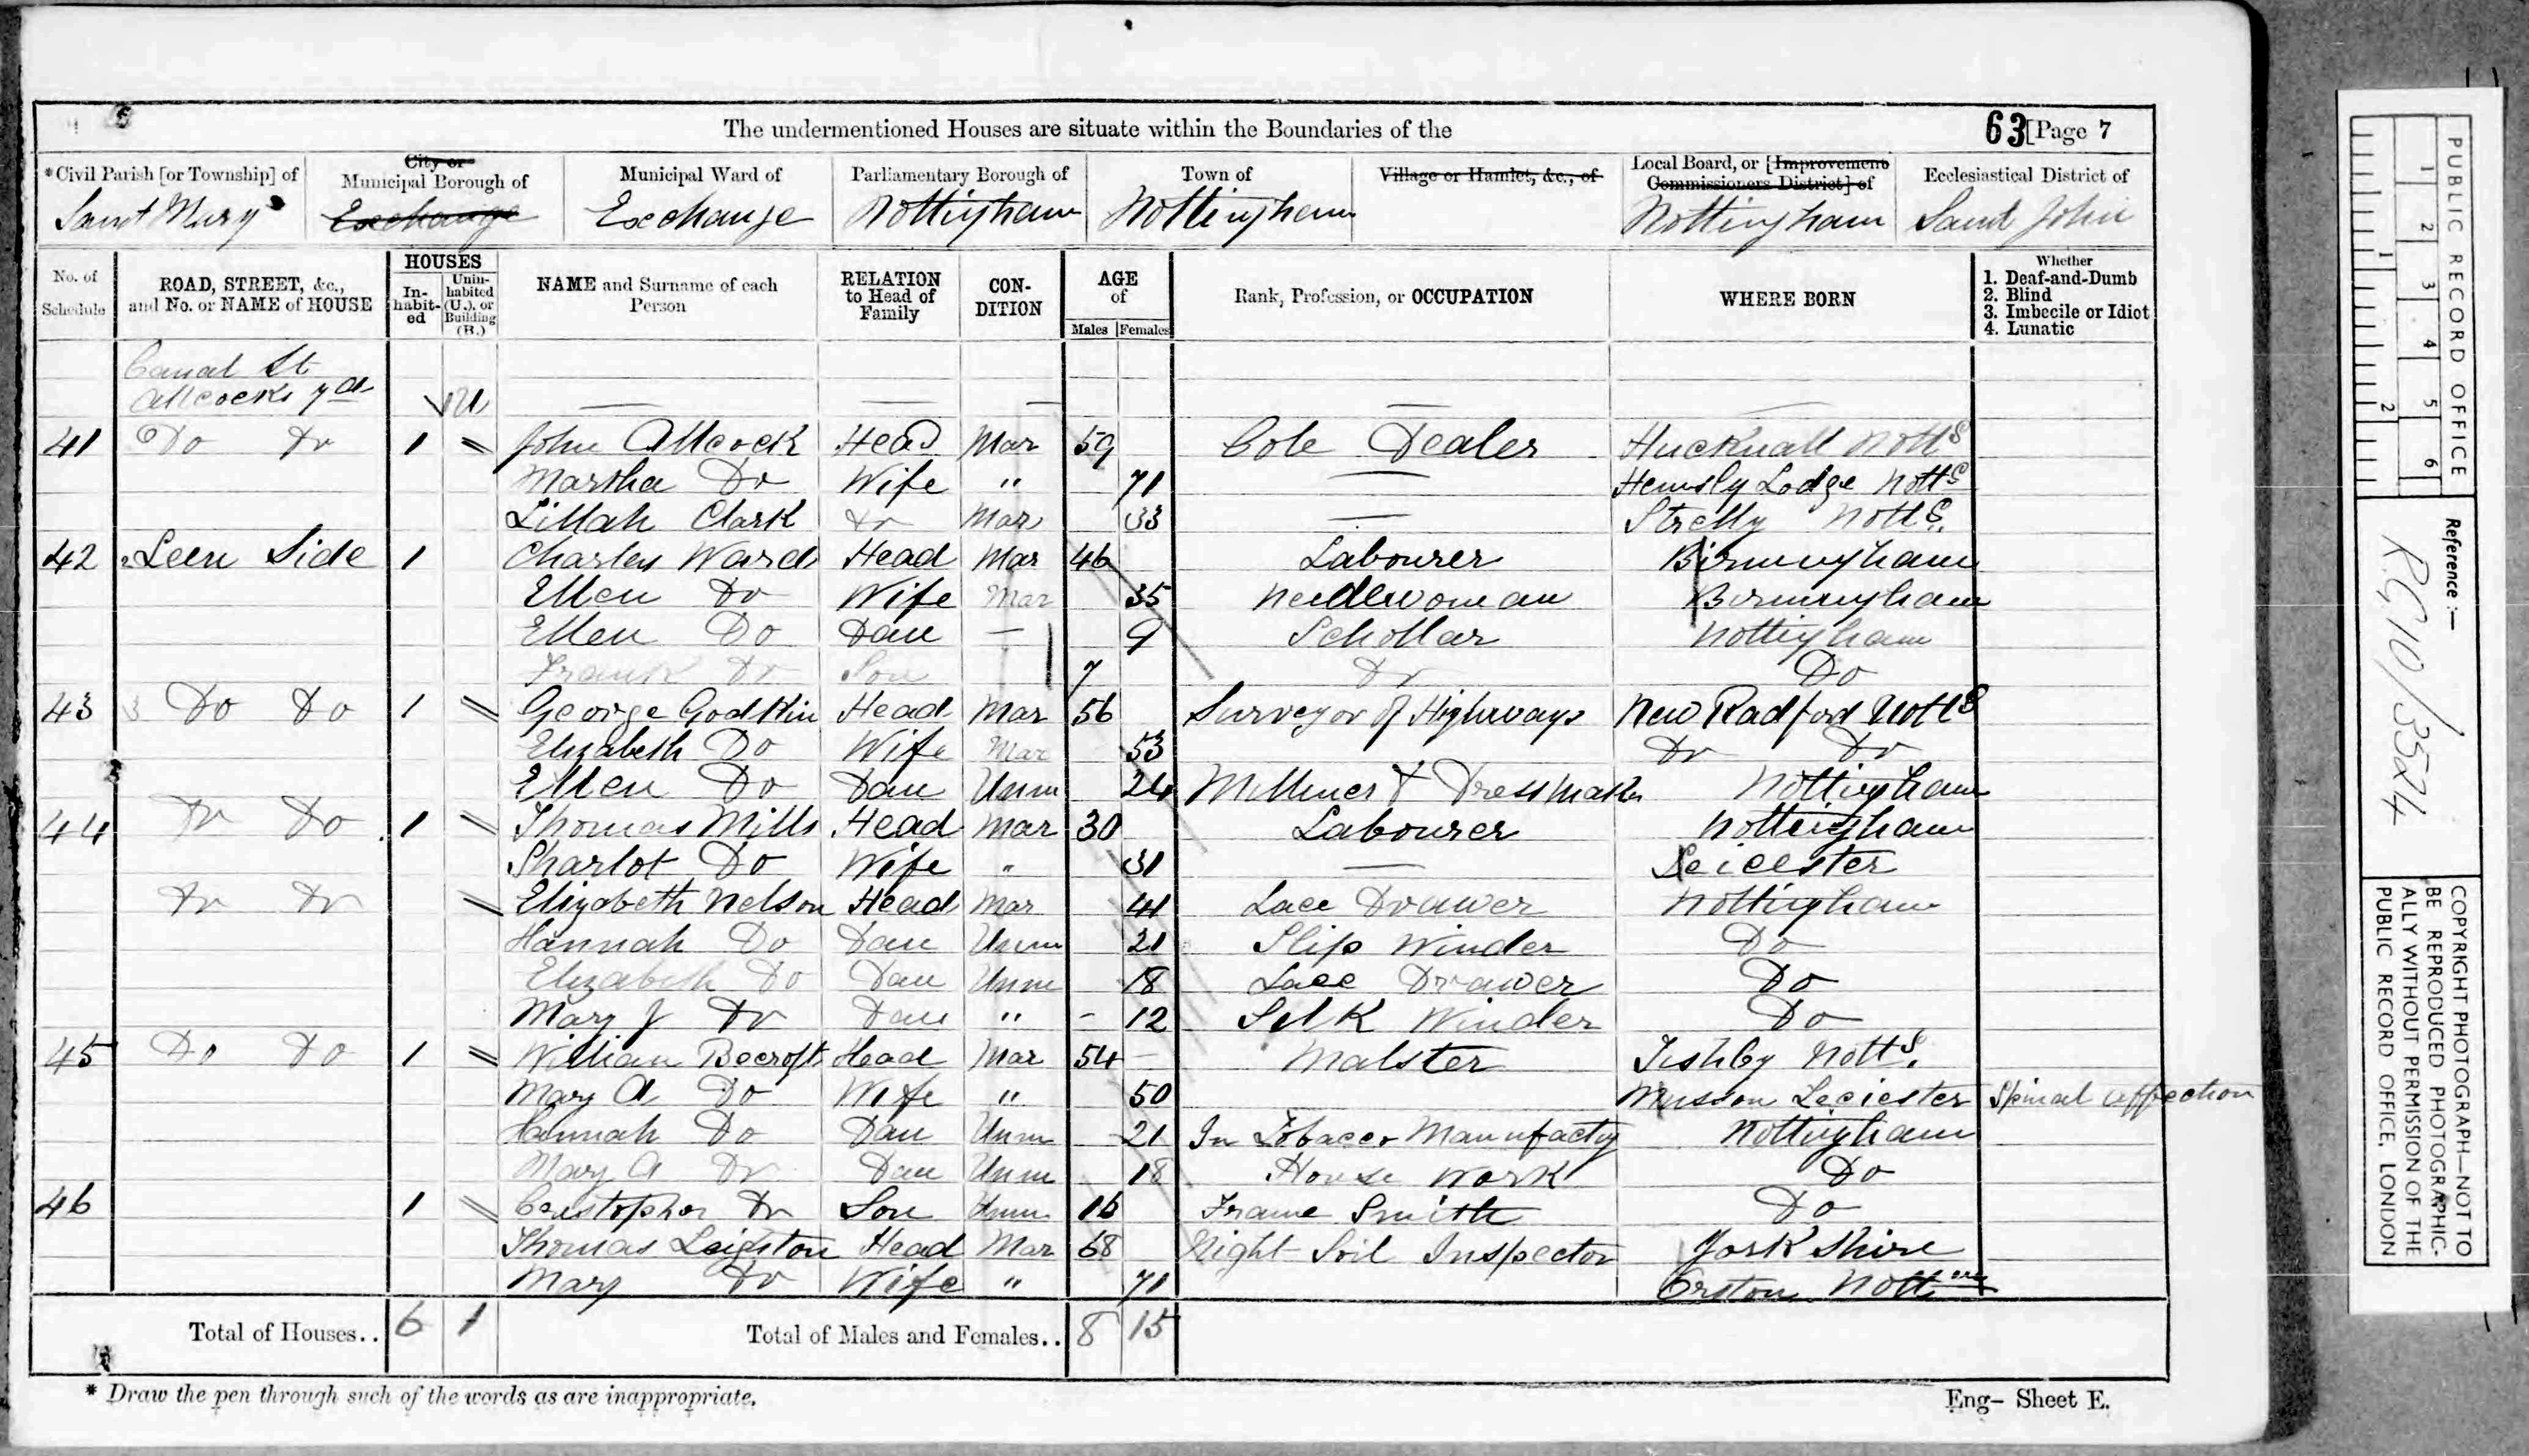 The undermentioned Houses are situate within the Boundaries of the 63 [Page 7
*Civil Parish [or Township] of City or Municipal Borough of Municipal Ward of Parliamentary Borough of Town of Village or Hamlet, &c., of Local Board, or [Improvement Commissioners District] of Ecclesiastical District of
Saint Mary Exchange Exchange Nottingham Nottingham Nottingham Saint John
No. of Schedule ROAD, STREET, &c., and No. or NAME of HOUSE HOUSES Inhabited Uninhabited (U.), or Building (B.) NAME and Surname of each Person RELATION to Head of Family CONDITION AGE of Males Females Rank, Profession, or OCCUPATION WHERE BORN Whether 1. Deaf-and-Dumb 2. Blind 3. Imbecile or Idiot 4. Lunatic
Canal St
Allcocks yd U — — — — —
41 Do Do 1 John Allcock Head Mar 59 Cole Dealer Hucknall Notts
Martha Do Wife " 71 — Hemsly Lodge Notts
Lillah Clark Do Mar 33 — Strelly Notts
42 Leen Side 1 Charles Ward Head Mar 46 Labourer Birmingham
Ellen Do Wife Mar 35 Needlewoman Birmingham
Ellen Do Dau — 9 Schollar Nottingham
Frank Do Son 7 Do Do
43 Do Do 1 George Godkin Head Mar 56 Surveyor of Highways New Radford Notts
Elizabeth Do Wife Mar 53 Do Do
Ellen Do Dau Unm 24 Milliner & Dressmaker Nottingham
44 Do Do 1 Thomas Mills Head Mar 30 Labourer Nottingham
Sharlot Do Wife " 31 — Leicester
Do Do Elizabeth Nelson Head Mar 41 Lace Drawer Nottingham
Hannah Do Dau Unm 21 Slip Winder Do
Elizabeth Do Dau Unm 18 Lace Drawer Do
Mary J Do Dau " - 12 Silk Winder Do
45 Do Do 1 William Becroft Head Mar 54 Malster Notts
Mary A Do Wife " 50 Musson Leciester Spinal affection
Hannah Do Dau Unm 21 In Tobacco Manufacty Nottingham
Mary A Do Dau Unm 18 House Work Do
46 1 Cristopher Do Son Unm 16 Frame Smith Do
Thomas Leighton Head Mar 68 Night Soil Inspector York Shire
Mary Do Wife " 71 Orston
Total of Houses.. 6 1 Total of Males and Females.. 8 15
* Draw the pen through such of the words as are inappropriate. Eng- Sheet E.
PUBLIC RECORD OFFICE
1 2 3 4 5 6
1 2
Reference :—
R.G 10/3524
COPYRIGHT PHOTOGRAPH—NOT TO
BE REPRODUCED PHOTOGRAPHIC-
ALLY WITHOUT PERMISSION OF THE
PUBLIC RECORD OFFICE, LONDON